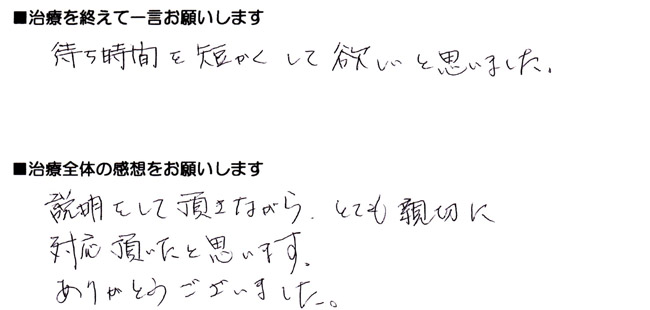 ■治療を終えて一言お願いします
待ち時間を短かくして欲しいと思いました。
■治療全体の感想をお願いします
説明をして頂きながら、とても親切に
対応頂いたと思います。
ありがとうございました。